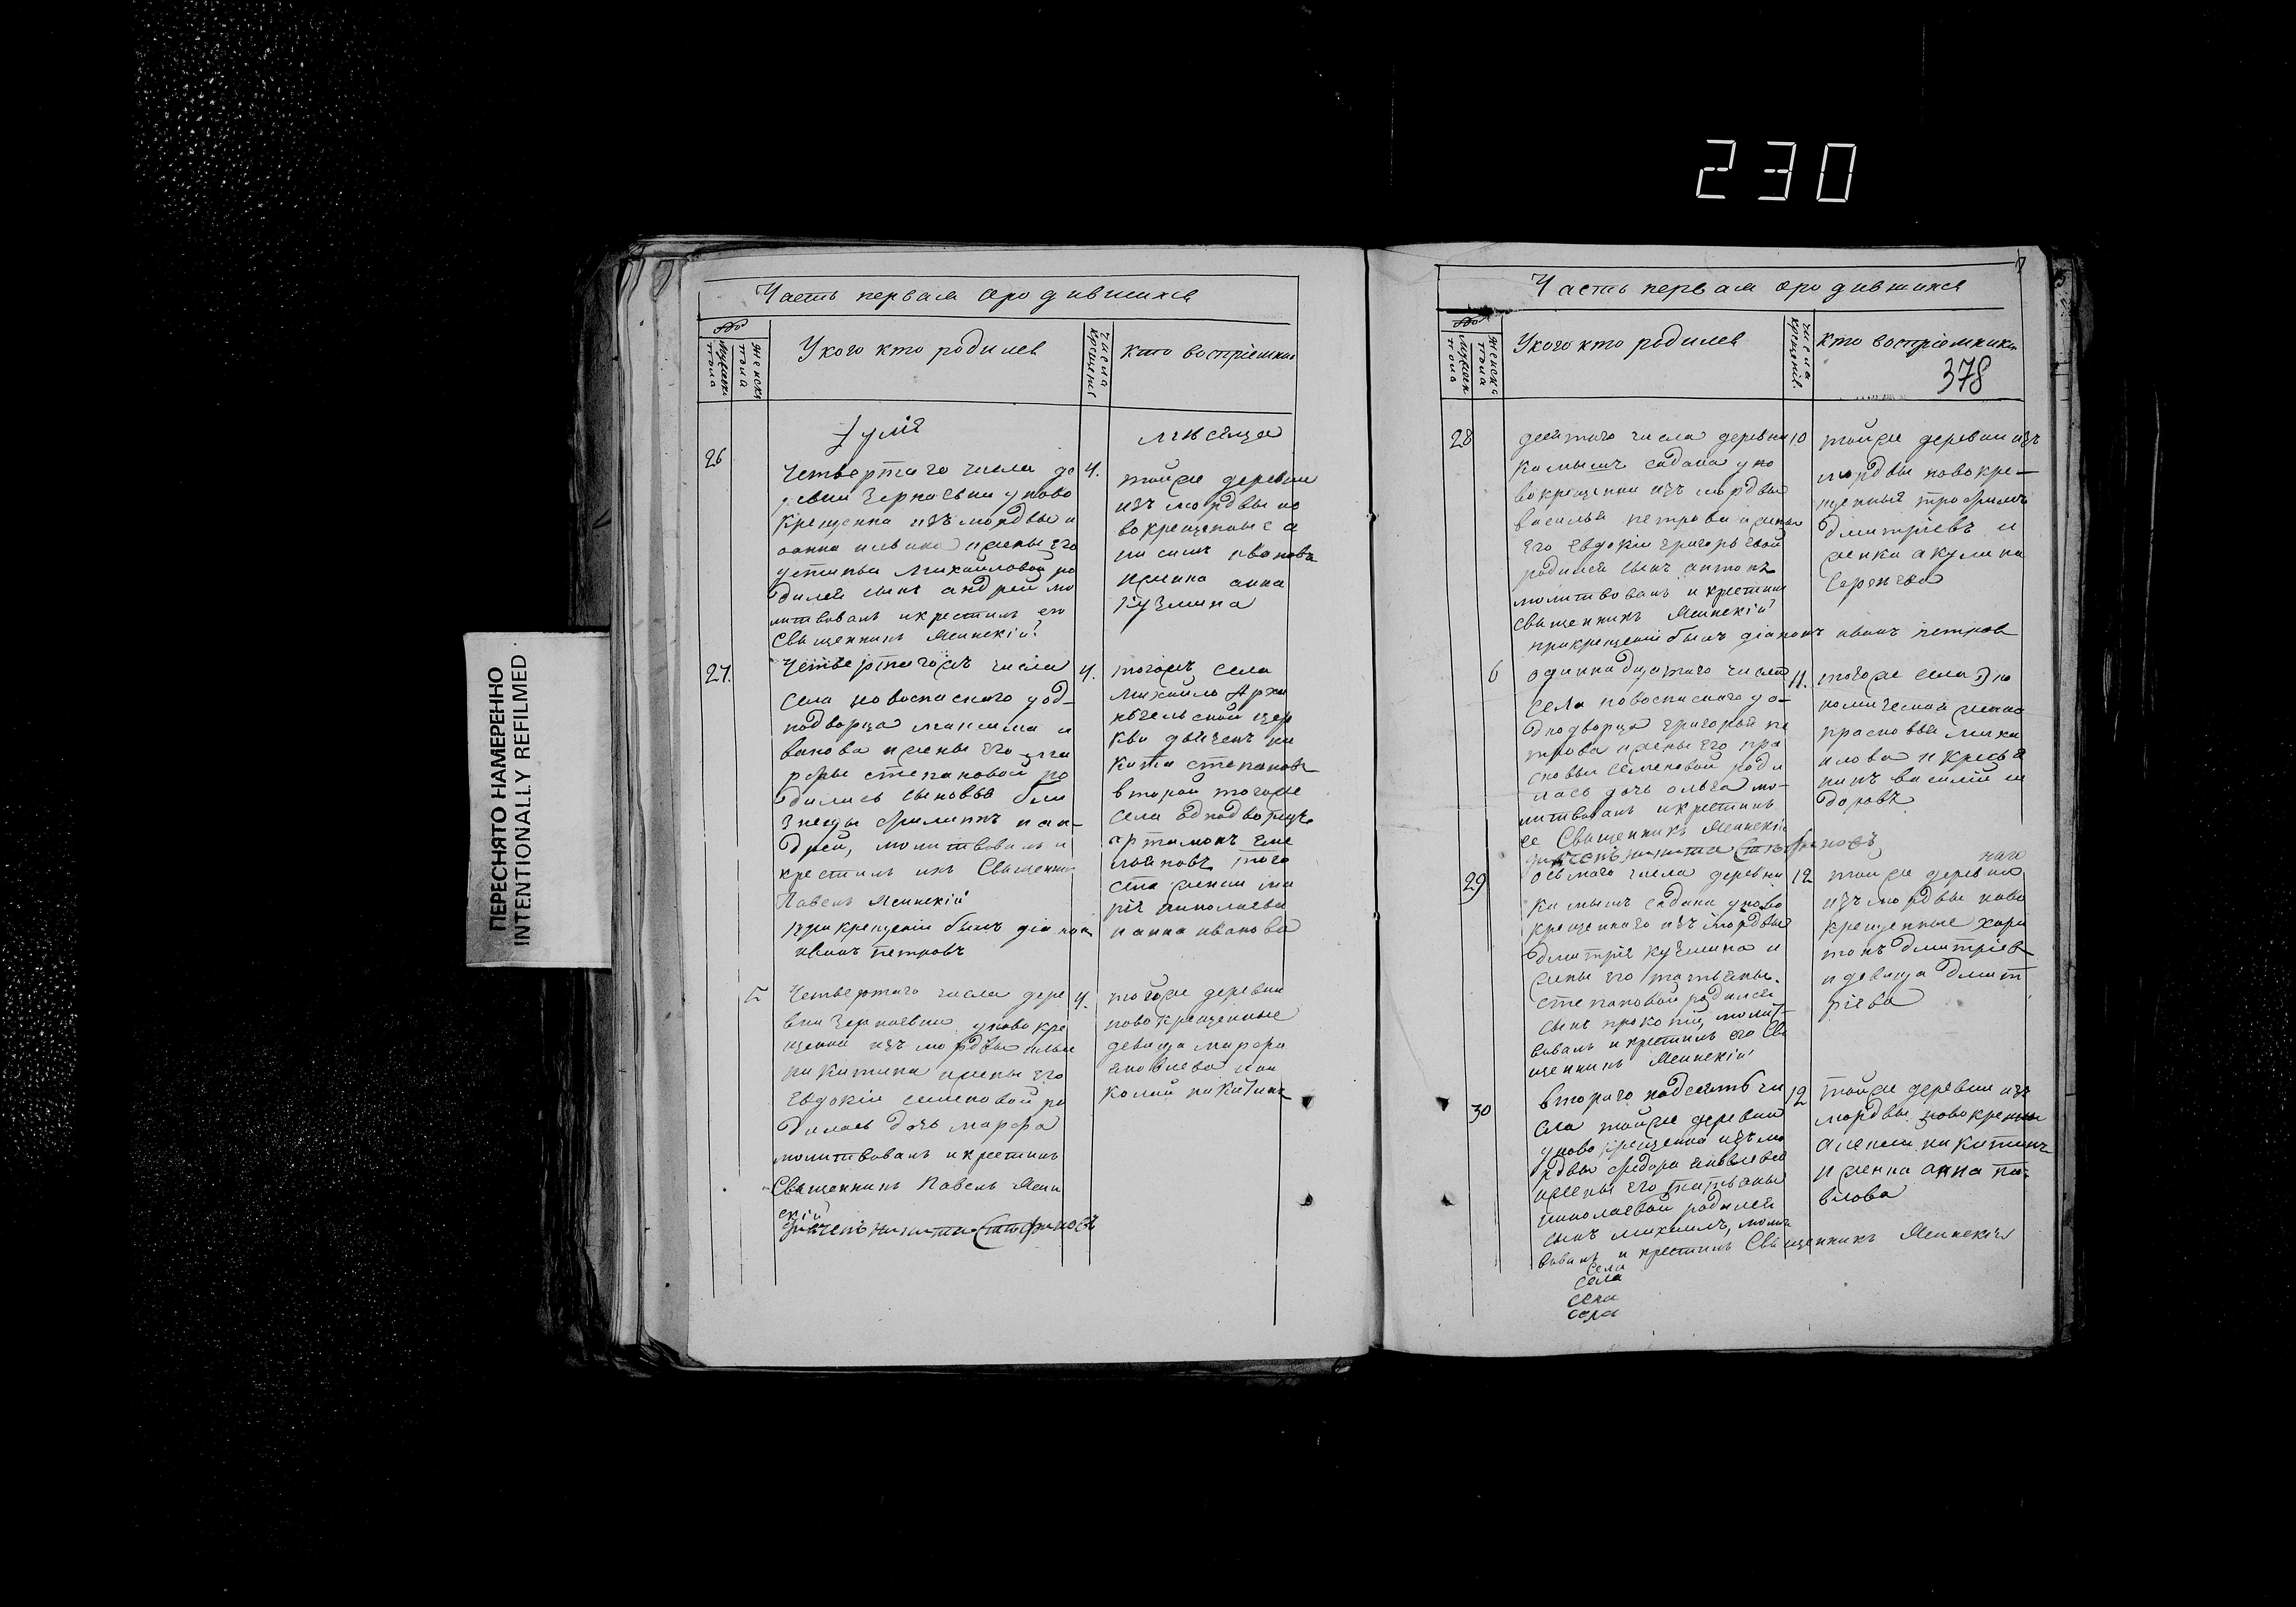 230
ПЕРЕСНЯТО НАМЕРЕННО
INTENTIONALLY REFILMED
Часть первая о родившихся
мужеск
пола
женска
пола
У кого кто родился
числа
крещенія
кто воспріемники
Іулія
мѣсяца
26
четвертаго числа де
ревни Зерклевни у ново
крещенна изъ мордвы и
и жены его
устиньи Михайловой ро
дился сынъ андрей мо
литвовалъ и крестилъ его
Священникъ Ясинскій
4.
тойже деревни
изъ мордвы но
вокрещеные а
нисимъ иванова
и женка анна
кузмина
27.
Четвертагожъ числа
села новоспаского у од-
нодворца максима и
ванова и жены его ма
рфы степановой ро
дились сыновья бли
знецы филиппъ и ан-
дрей, молитвовалъ и
крестилъ ихъ Священник
Павелъ Ясинскій
при крещеніи былъ діакон
иванъ петровъ
4.
тогожъ села
Михайло Архи
нгельской цер
кви дьячекъ ни
кита степановъ
второй тогоже
села однодворецъ
артамонъ еме
льяновъ того
села женки ма
рія николаева
и анна иванова
5
Четвертаго числа дере
вни новокре
щеной изъ мордвы ильи
никитина и жены его
Евдокіи семеновой ро
дилась дочь марфа
молитвовалъ и крестилъ
Священникъ Павелъ Ясин
скій
дьячекъ никита Стефановъ
4.
тойже деревни
новокрещенные
девица марфа
яковлева и ни
колай никитинъ
Часть первая о родившихся
мужеск
пола
женска
пола
У кого кто родился
числа
крещенія.
кто воспріемники
378
28
десятаго числа деревни
камышъ садака у но
вокрещенна изъ мордвы
василья петрова и жены
его Евдокіи григорьевой
родился сынъ антонъ
молитвовалъ и крестилъ
священникъ Ясинскій
при крещеніи былъ діаконъ иванъ петровъ
10
тойже деревни изъ
мордвы новокре-
щенный трофимъ
дмитріевъ и
женка акулина
Сергѣева
6
одиннадцатаго числа
села новоспаского у о-
днодворца григорья пе
трова и жены его пра
сковьи семеновой роди
лась дочь ольга мо-
литвовалъ и крестилъ
ее Священникъ Ясинскій
дьячекъ никита Стефановъ
11.
тогоже села эко
номической женка
прасковья миха
илова и кресья
нинъ василий си
доровъ
29
осьмаго числа деревни
камышъ садака у ново
крещеннаго изъ мордвы
дмитрія кузмина и
жены его татьяны
степановой родился
сынъ прокопій, молит
вовалъ и крестилъ его Свя
щенникъ Ясинскій
12
тойже деревни
изъ мордвы ново
крещенные хари
тонъ дмитріев
и девица дмит
ріева
30
втораго надесять чи
сла тойже деревни
у новокрещенна изъ мо
рдвы федора яковлева
и жены его татьяны
николаевой родился
сынъ михаилъ, молит
вовалъ и крестилъ Священникъ Ясинскій
12
тойже деревни изъ
мордвы новокрещены
алексѣи никитинъ
и женка анна па-
влова
села
села
села